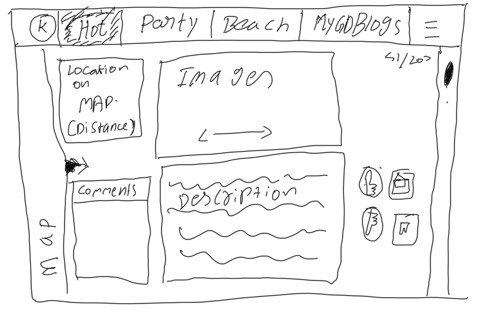 K Hot Party Beach MyGDBlogs
Location
on
MAP.
(Distance)
Images
Comments
Description
Map